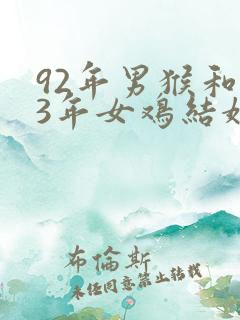 92年男猴和
3年女鸡結
布倫斯
未经同意禁止转载